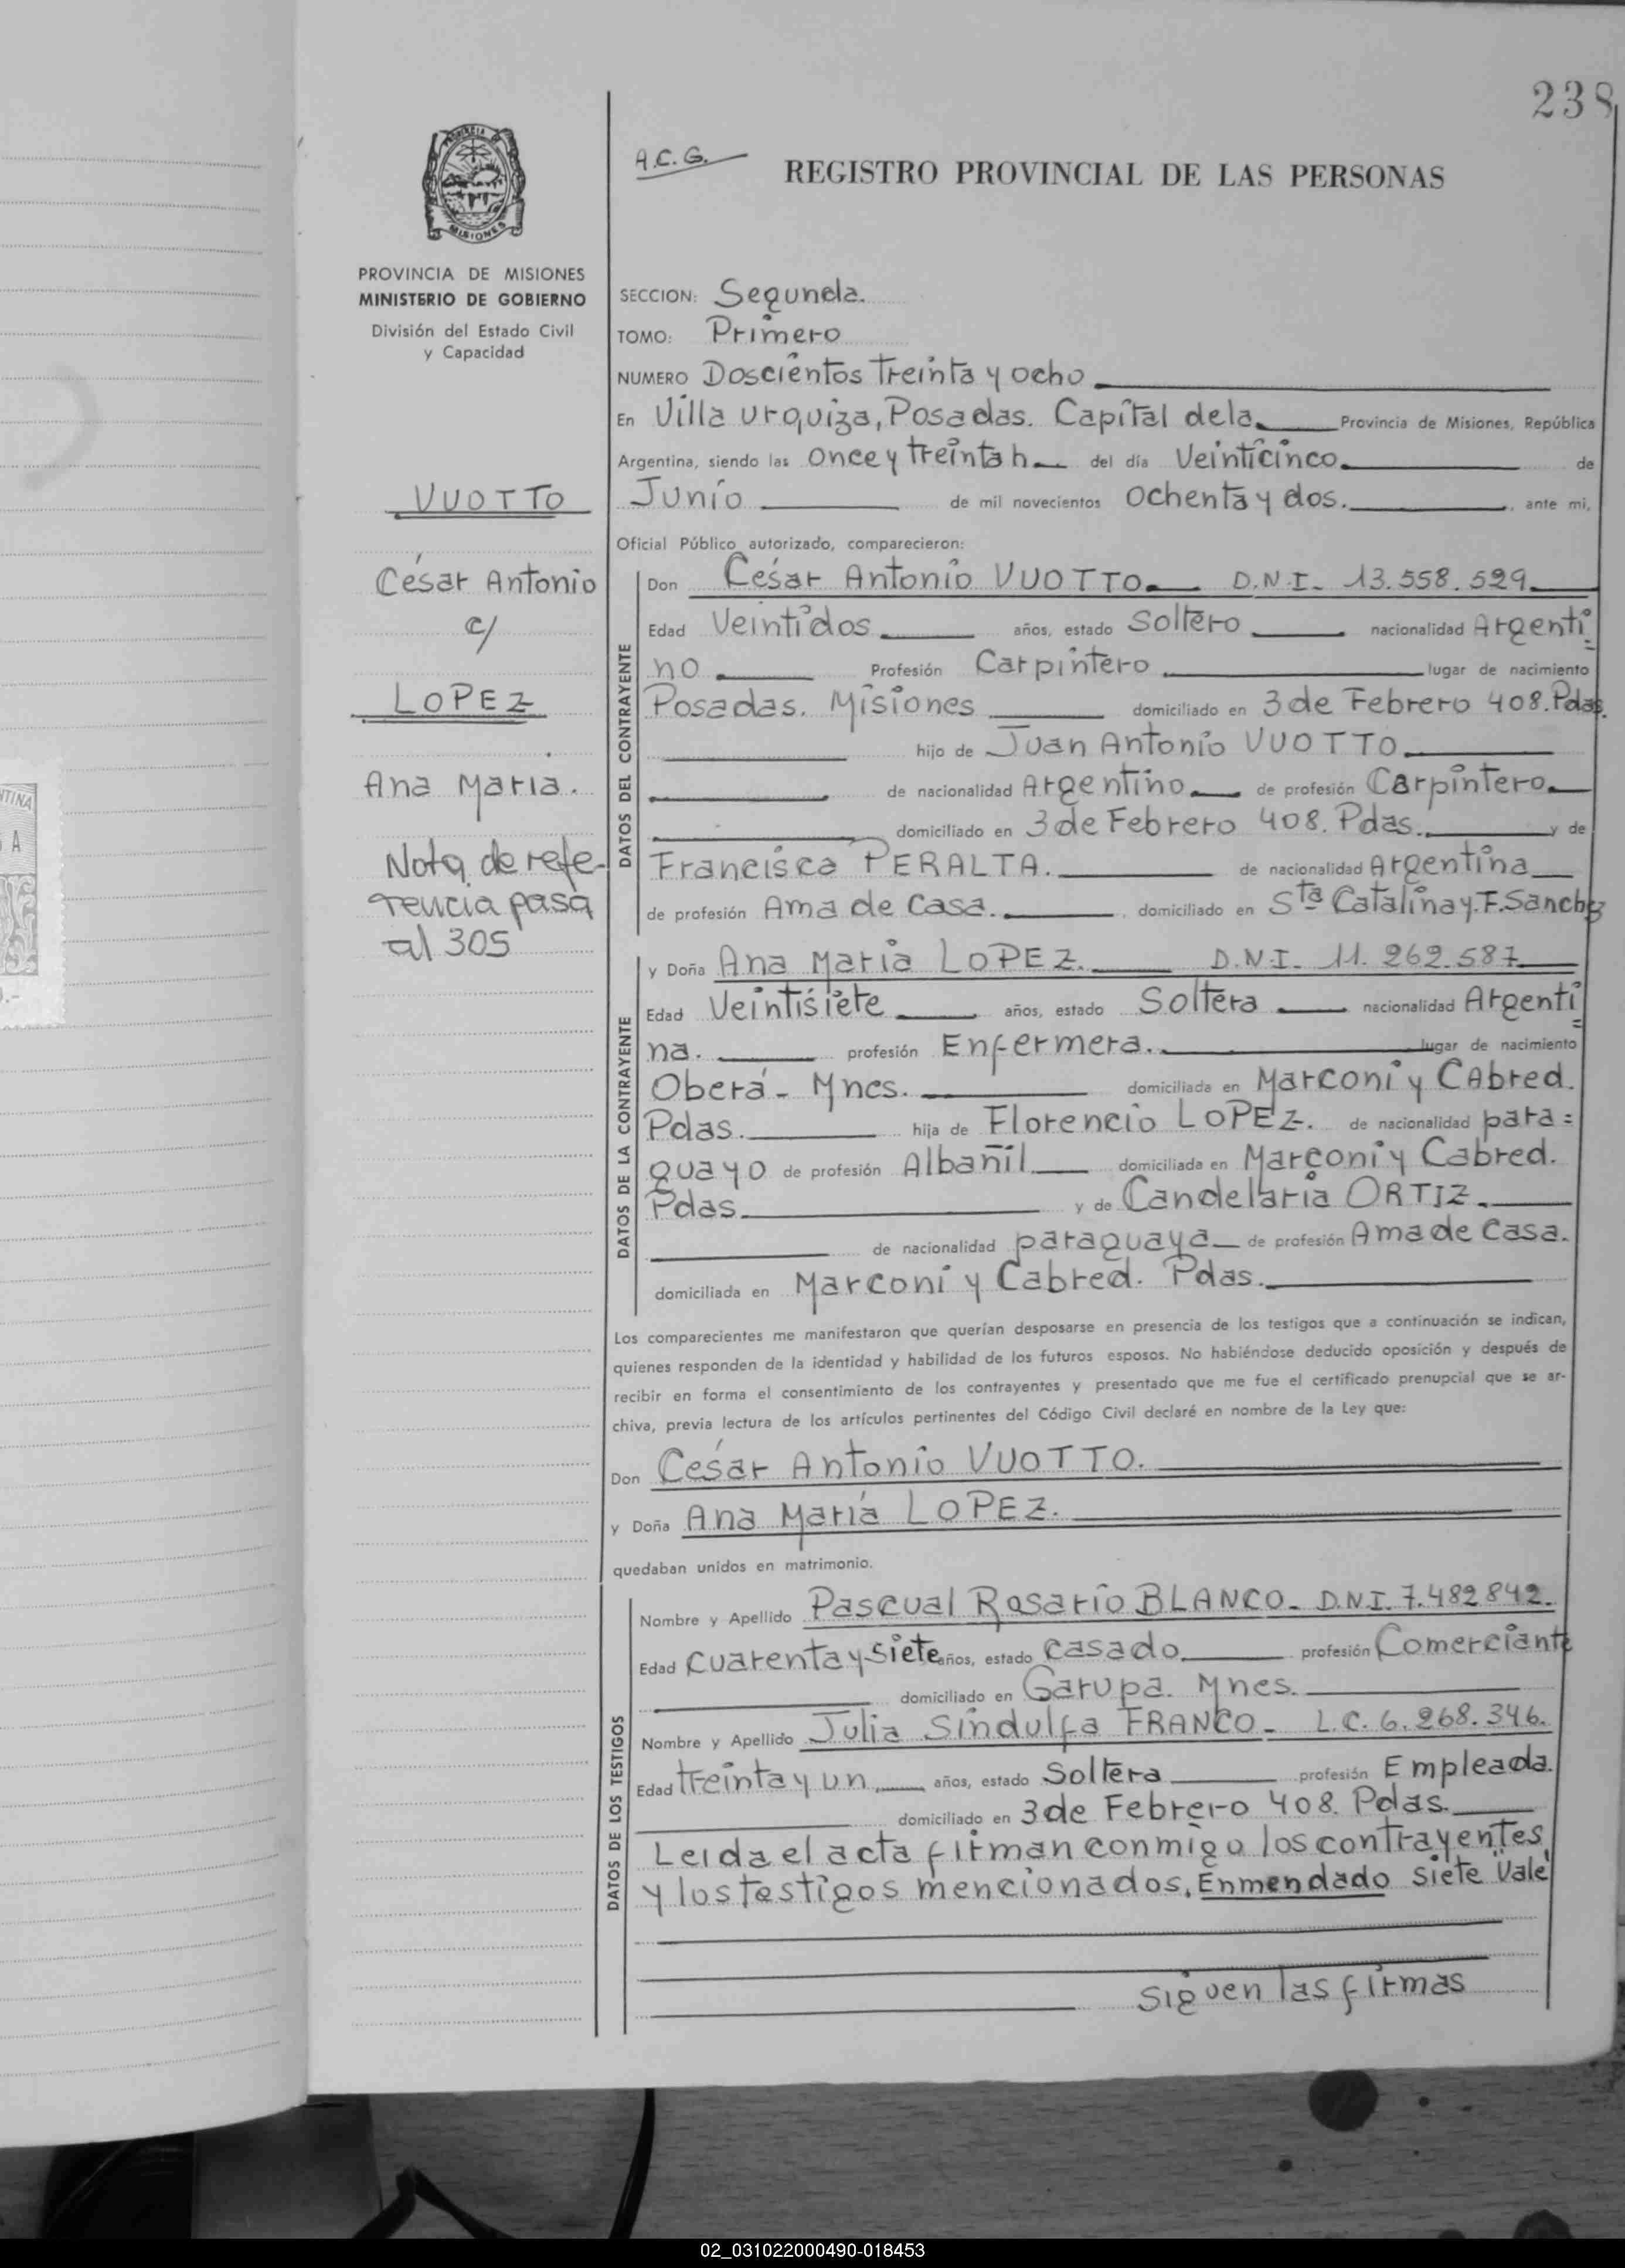 238
A.C.G.
REGISTRO PROVINCIAL DE LAS PERSONAS
PROVINCIA DE MISIONES
MINISTERIO DE GOBIERNO
División del Estado Civil
y Capacidad
VUOTTO
César Antonio
c/
LOPEZ
Ana Maria.
Nota de refe-
rencia pasa
al 305
SECCION: Segunda.
TOMO: Primero
NUMERO Doscientos treinta y ocho
En Villa Urquiza, Posadas. Capital de la Provincia de Misiones, República
Argentina, siendo las once y treinta h. del día Veinticinco. de
Junio de mil novecientos ochenta y dos. , ante mi,
Oficial Público autorizado, comparecieron:
DATOS DEL CONTRAYENTE
Don César Antonio VUOTTO. D.N.I. 13.558.529.
Edad Veintidos años, estado Soltero nacionalidad Argenti
no Profesión Carpintero lugar de nacimiento
Posadas. Misiones domiciliado en 3 de Febrero 408. Pdas.
hijo de Juan Antonio VUOTTO.
de nacionalidad Argentino de profesión Carpintero.
domiciliado en 3 de Febrero 408. Pdas. y de
Francisca PERALTA. de nacionalidad Argentina
de profesión Ama de Casa. , domiciliado en Sta Catalina y F. Sanchez
DATOS DE LA CONTRAYENTE
y Doña Ana Maria LOPEZ. D.N.I. 11.262.587
Edad Veintisiete años, estado Soltera nacionalidad Argenti
=
na. profesión Enfermera. lugar de nacimiento
Oberá - Mnes. domiciliada en Marconi y CAbred.
Pdas. hija de Florencio LOPEZ. de nacionalidad para=
guayo de profesión Albañil domiciliada en Marconi y Cabred.
Pdas y de Candelaria ORTIZ.
de nacionalidad paraguaya de profesión Ama de Casa.
domiciliada en Marconi y Cabred. Pdas.
Los comparecientes me manifestaron que querían desposarse en presencia de los testigos que a continuación se indican,
quienes responden de la identidad y habilidad de los futuros esposos. No habiéndose deducido oposición y después de
recibir en forma el consentimiento de los contrayentes y presentado que me fue el certificado prenupcial que se ar-
chiva, previa lectura de los artículos pertinentes del Código Civil declaré en nombre de la Ley que:
Don César Antonio VUOTTO.
y Doña Ana María LOPEZ.
quedaban unidos en matrimonio.
DATOS DE LOS TESTIGOS
Nombre y Apellido Pascual Rosario BLANCO - D.N.I. 7.482842.
Edad cuarenta y siete años, estado casado profesión Comerciante
domiciliado en Garupa. Mnes.
Nombre y Apellido Julia Sindulfa FRANCO - L.C. 6.268.346.
Edad treinta y un años, estado Soltera profesión Empleada.
domiciliado en 3 de Febrero 408. Pdas.
Leida el acta firman conmigo los contrayentes
y los testigos mencionados. Enmendado siete "Vale"
Siguen las firmas
02_031022000490-018453